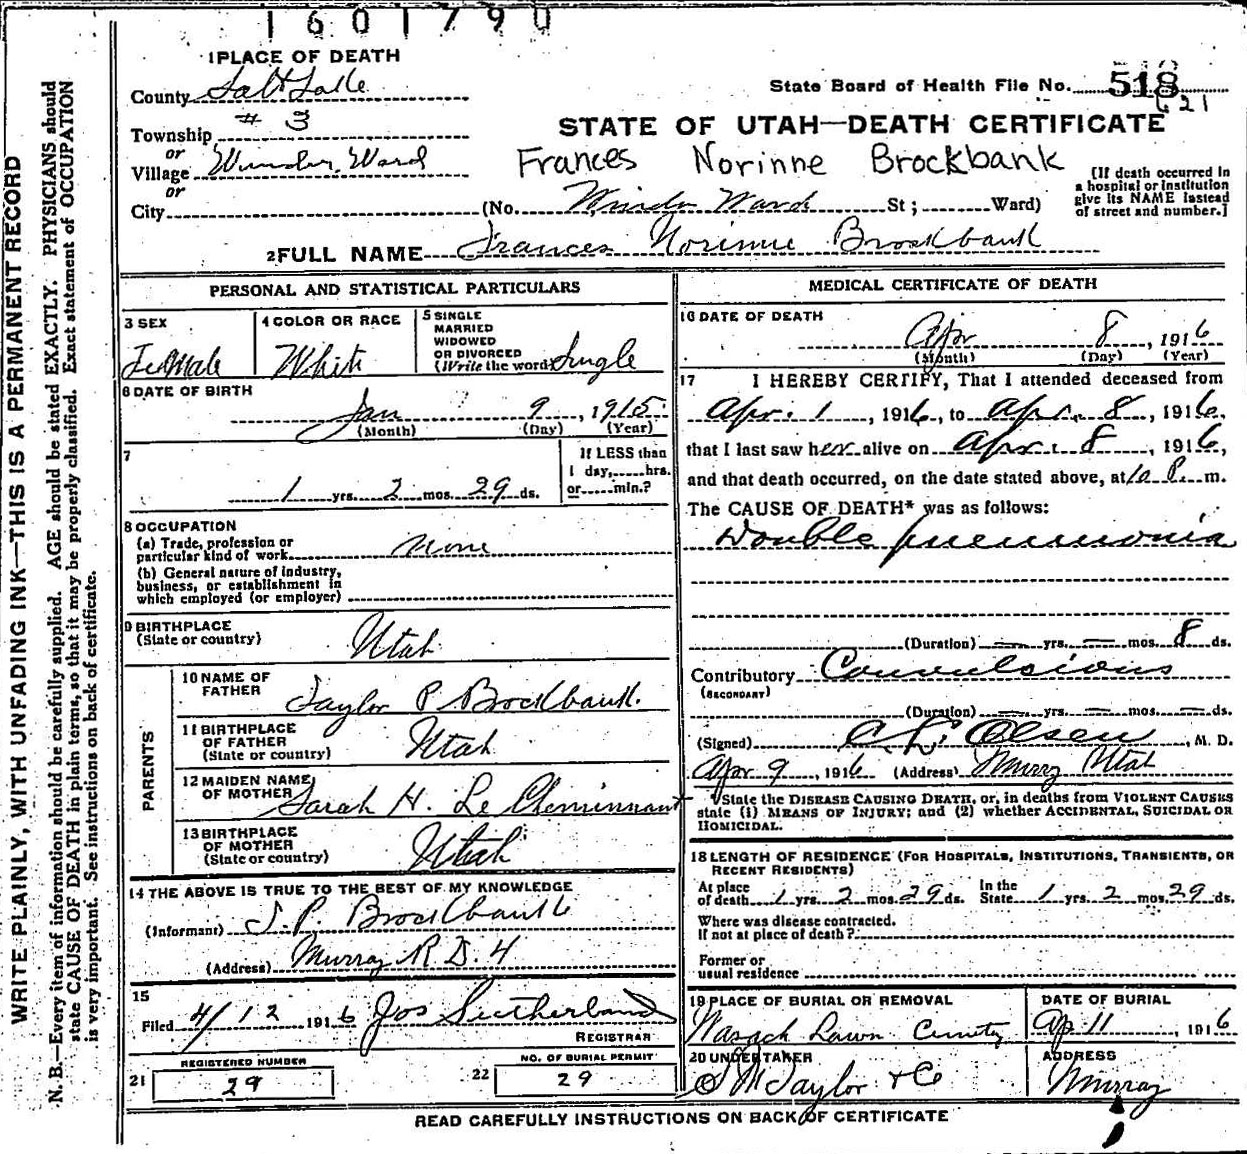 1601790
1 PLACE OF DEATH
County Salt Lake
State Board of Health File No. 518
621
Township # 3
or
Village Winder Ward
or
City
STATE OF UTAH—DEATH CERTIFICATE
Frances Norinne Brockbank
(No. Winder Ward St; Ward)
[If death occurred in
a hospital or institution
give its NAME instead
of street and number.]
2 FULL NAME Frances Norinne Brockbank
PERSONAL AND STATISTICAL PARTICULARS
3 SEX
Female
4 COLOR OR RACE
White
5 SINGLE
MARRIED
WIDOWED
OR DIVORCED
(Write the word) Single
6 DATE OF BIRTH
Jan 9, 1915
(Month) (Day) (Year)
7
1 yrs. 2 mos. 29 ds.
If LESS than
1 day, hrs.
or min.?
8 OCCUPATION
(a) Trade, profession or
particular kind of work None
(b) General nature of industry,
business, or establishment in
which employed (or employer)
9 BIRTHPLACE
(State or country) Utah
PARENTS
10 NAME OF
FATHER Taylor P Brockbank.
11 BIRTHPLACE
OF FATHER
(State or country) Utah
12 MAIDEN NAME
OF MOTHER Sarah H. Le Cheminnant
13 BIRTHPLACE
OF MOTHER
(State or country) Utah
14 THE ABOVE IS TRUE TO THE BEST OF MY KNOWLEDGE
(Informant) T. P. Brockbank
(Address) Murray R. D. 4
15
Filed 4/12 1916 Jos Sutherland
REGISTRAR
REGISTERED NUMBER
21 29
NO. OF BURIAL PERMIT
22 29
MEDICAL CERTIFICATE OF DEATH
16 DATE OF DEATH
Apr 8, 1916
(Month) (Day) (Year)
17 I HEREBY CERTIFY, That I attended deceased from
Apr. 1, 1916, to Apr. 8, 1916,
that I last saw her alive on Apr. 8, 1916,
and that death occurred, on the date stated above, at 10 P. m.
The CAUSE OF DEATH* was as follows:
Double pneumonia
(Duration) — yrs. — mos. 8 ds.
Contributory Convulsions
(SECONDARY)
(Duration) — yrs. — mos. — ds.
(Signed) C. L. Olsen, M. D.
Apr 9, 1916 (Address) Murry Utah
*State the DISEASE CAUSING DEATH, or, in deaths from VIOLENT CAUSES
state (1) MEANS OF INJURY; and (2) whether ACCIDENTAL, SUICIDAL OR
HOMICIDAL.
18 LENGTH OF RESIDENCE (FOR HOSPITALS, INSTITUTIONS, TRANSIENTS, OR
RECENT RESIDENTS)
At place
of death 1 yrs. 2 mos. 29 ds. In the
State 1 yrs. 2 mos. 29 ds.
Where was disease contracted.
If not at place of death?
Former or
usual residence
19 PLACE OF BURIAL OR REMOVAL
Wasach Lawn Cemetery
DATE OF BURIAL
Ap 11, 1916
20 UNDERTAKER
S M Taylor & Co
ADDRESS
Murray
READ CAREFULLY INSTRUCTIONS ON BACK OF CERTIFICATE
WRITE PLAINLY, WITH UNFADING INK—THIS IS A PERMANENT RECORD
N. B.—Every item of information should be carefully supplied. AGE should be stated EXACTLY. PHYSICIANS should
state CAUSE OF DEATH in plain terms, so that it may be properly classified. Exact statement of OCCUPATION
is very important. See instructions on back of certificate.